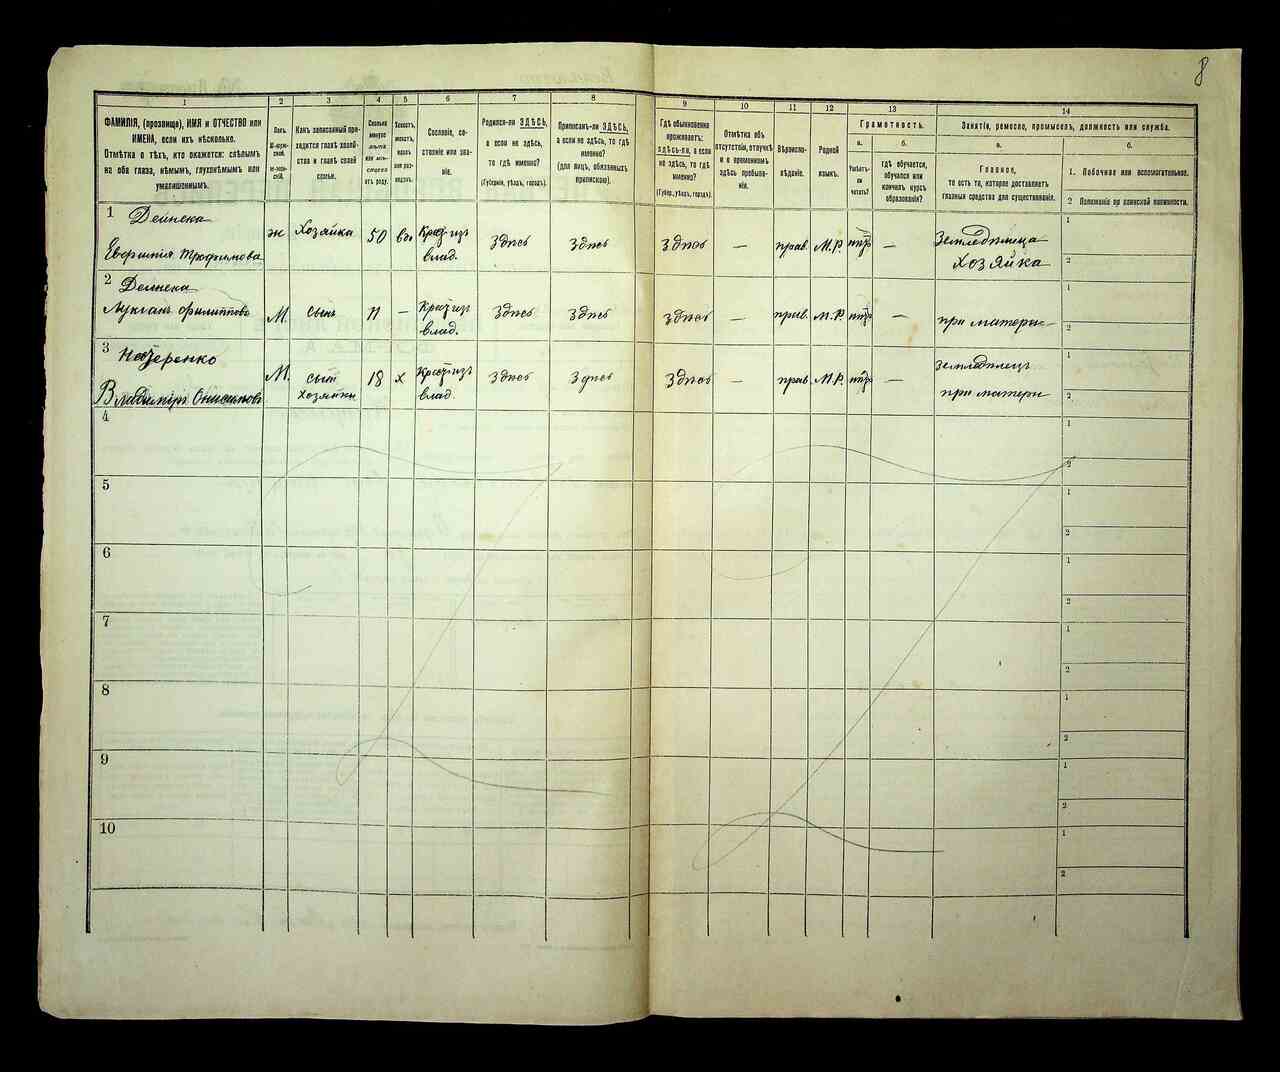 8
1
2
3
4
5
6
7
8
9
10
11
12
13
14
ФАМИЛІЯ, (прозвище), ИМЯ и ОТЧЕСТВО или
ИМЕНА, если ихъ нѣсколько.
Отмѣтка о тѣхъ, кто окажется: слѣпымъ
на оба глаза, нѣмымъ, глухонѣмымъ или
умалишеннымъ.
Полъ.
М-мужской.
Ж-женскій.
Какъ записанный приходится главѣ хозяйства и главѣ своей
семьи.
Сколько
минуло
лѣтъ
или мѣсяцевъ
отъ роду.
Холостъ,
женатъ,
вдовъ
или разведенъ.
Сословіе, состояніе или званіе.
Родился-ли ЗДѢСЬ,
а если не здѣсь,
то гдѣ именно?
(Губернія, уѣздъ, городъ).
Приписанъ-ли ЗДѢСЬ,
а если не здѣсь, то гдѣ
именно?
(для лицъ, обязанныхъ
припискою).
Гдѣ обыкновенно
проживаетъ:
здѣсь-ли, а если
не здѣсь, то гдѣ
именно?
(Губер., уѣздъ, городъ).
Отмѣтка объ
отсутствіи, отлучкѣ
и о временномъ
здѣсь пребываніи.
Вѣроисповѣданіе.
Родной
языкъ.
Грамотность.
а.
Умѣетъ-ли
читать?
б.
гдѣ обучается,
обучался или
кончилъ курсъ
образованія?
Занятіе, ремесло, промыселъ, должность или служба.
а.
Главное,
то есть то, которое доставляетъ
главныя средства для существованія.
б.
1. Побочное или вспомогательное.
2 Положеніе по воинской повинности.
1 Дейнека
Трофимова
ж Хозяйка 50 вд. Кр. из влад. Здѣсь Здѣсь Здѣсь — прав. М.Р. — Хозяйка
1
2
2 Дейнека
Филипповъ
М. сынъ 11 — Кр. из влад. Здѣсь Здѣсь Здѣсь — прав. М.Р. — при матери
1
2
3 Назаренко
Владиміръ Онисимовъ
М. сын хозяйки 18 х Кр. из влад. Здѣсь Здѣсь Здѣсь — прав. М.Р. — Земледѣлецъ при матери
1
2
4
1
2
5
1
2
6
1
2
7
1
2
8
1
2
9
1
2
10
1
2